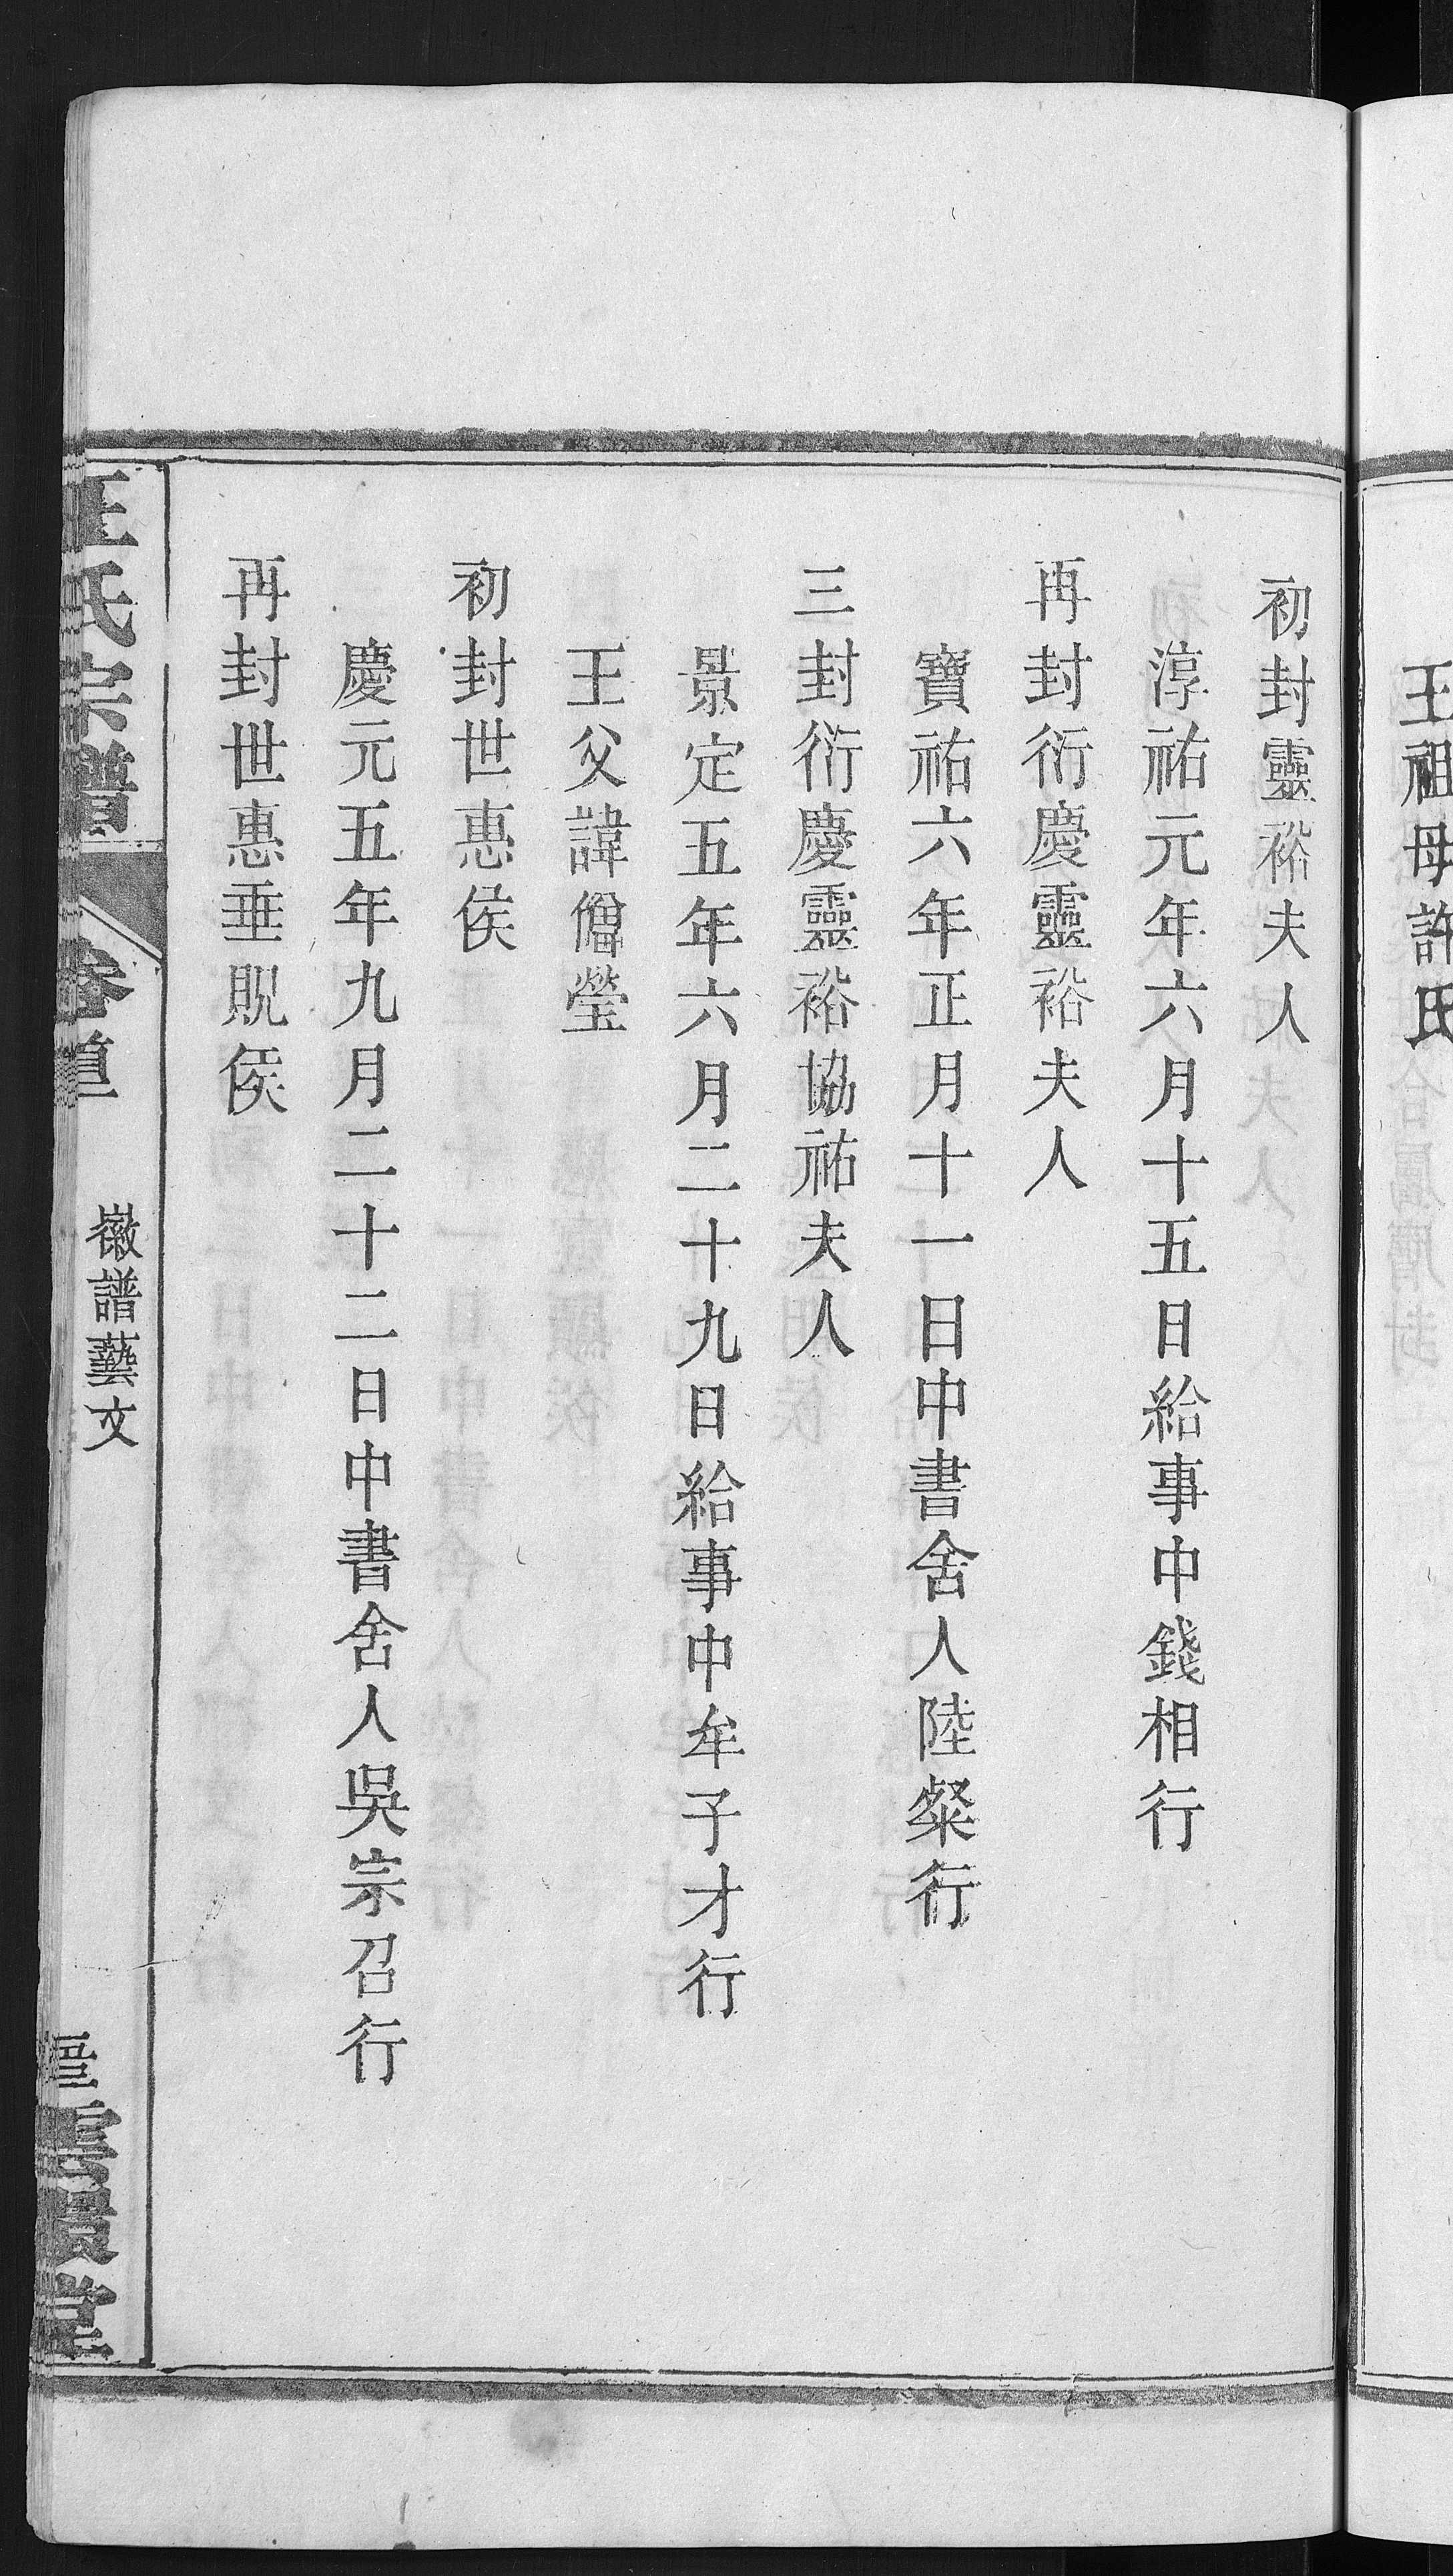 王祖母許氏
初封靈裕夫人
淳祐元年六月十五日給事中錢相行
再封衍慶靈裕夫人
寶祐六年正月十一日中書舍人陸粲行
三封衍慶靈裕協祐夫人
景定五年六月二十九日給事中牟子才行
王父諱僧瑩
初封世惠侯
慶元五年九月二十二日中書舍人吳宗召行
再封世惠垂貺侯
汪氏宗譜
卷首
徽譜藝文
堂